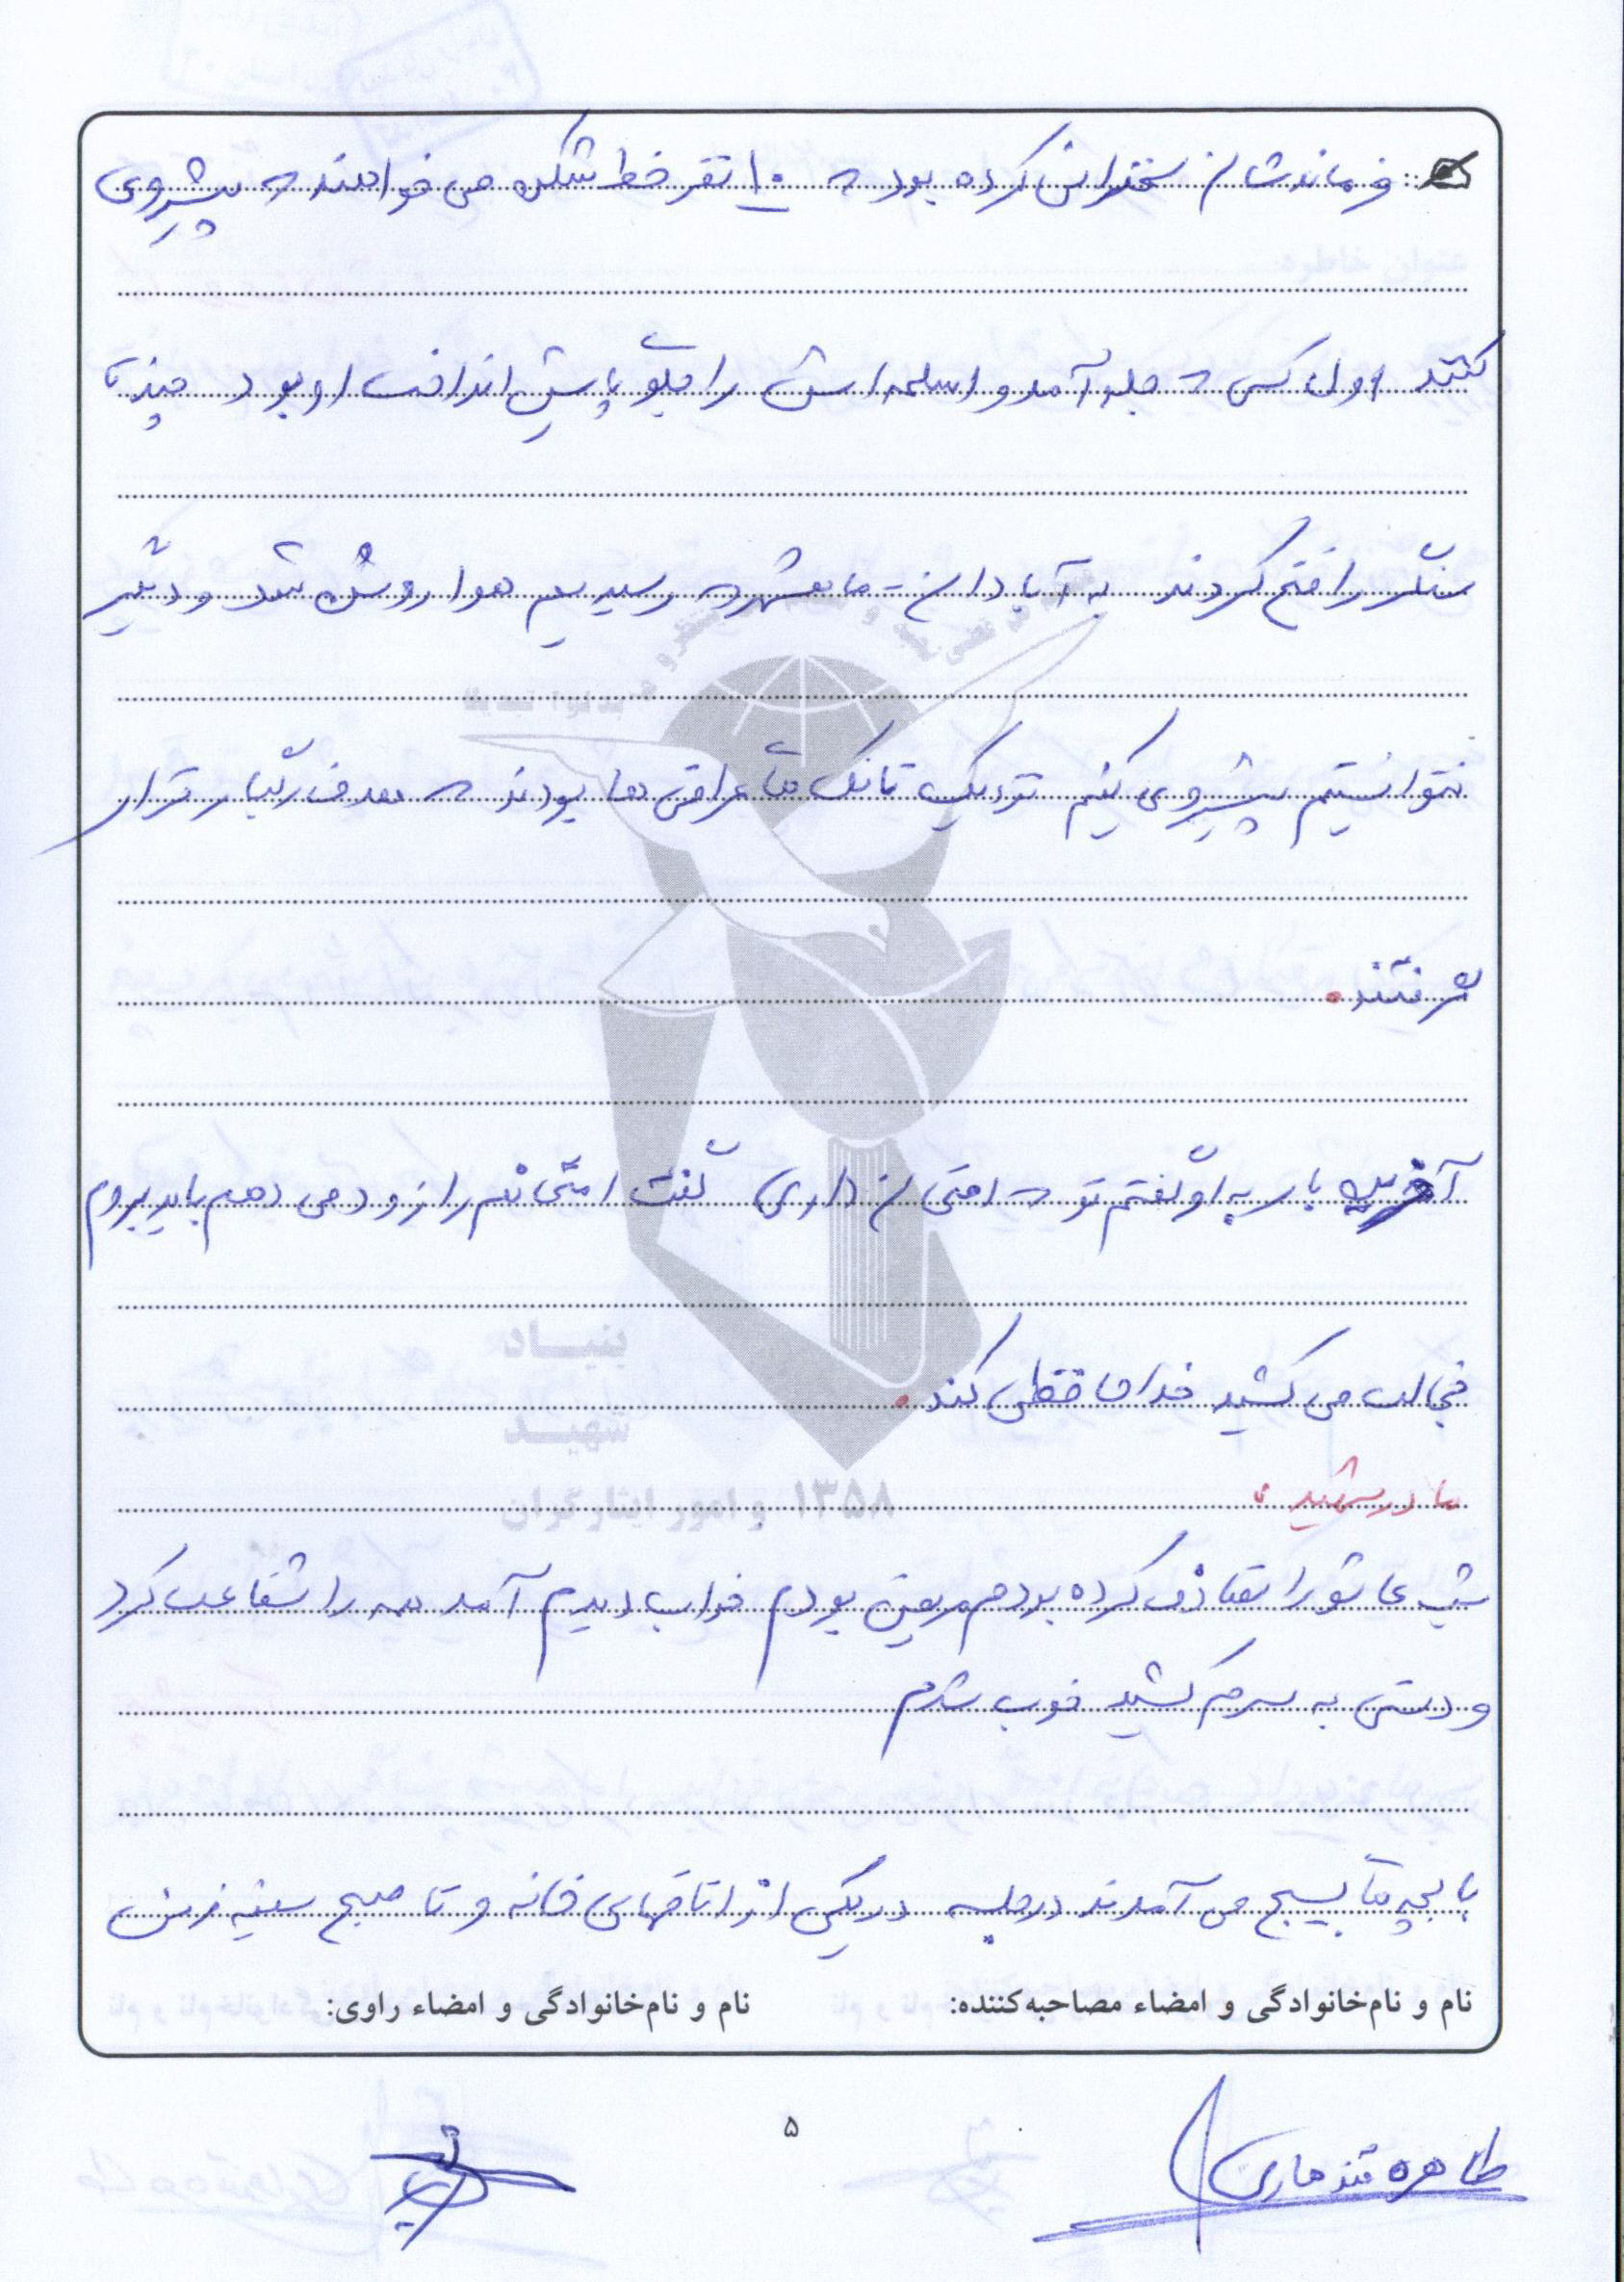 فرمانده‌شان سخنرانی کرده بود که ۱۰ نفر خط شکن می خواهند که پیشروی
کنند اول کسی که جلو آمد و اسلحه اش را جلوی پایش انداخت او بود چند تا
سنگر را فتح کردند به آبادان - ماهشهر که رسیدیم هوا روشن شد و دیگر
نتوانستیم پیشروی کنیم نزدیک تانک های عراقی ها بودند که هدف رگبار قرار
گرفتند.
آخرین بار به او گفتم تو که امتحان داری گفت امتحانم را زود می دهم باید بروم
خجالت می کشید خداحافظی کند.
مادر شهید:
شب عاشورا تصادف کرده بودم مریض بودم خواب دیدم آمد همه را شفاعت کرد
و دستی به سرم کشید خوب شدم
با بچه های بسیج می آمدند در جلسه در یکی از اتاقهای خانه و تا صبح سینه زنی
نام و نام‌خانوادگی و امضاء مصاحبه‌کننده: نام و نام‌خانوادگی و امضاء راوی:
۵
طاهره قندهاری
بنیاد
شهید
و امور ایثارگران ۱۳۵۸